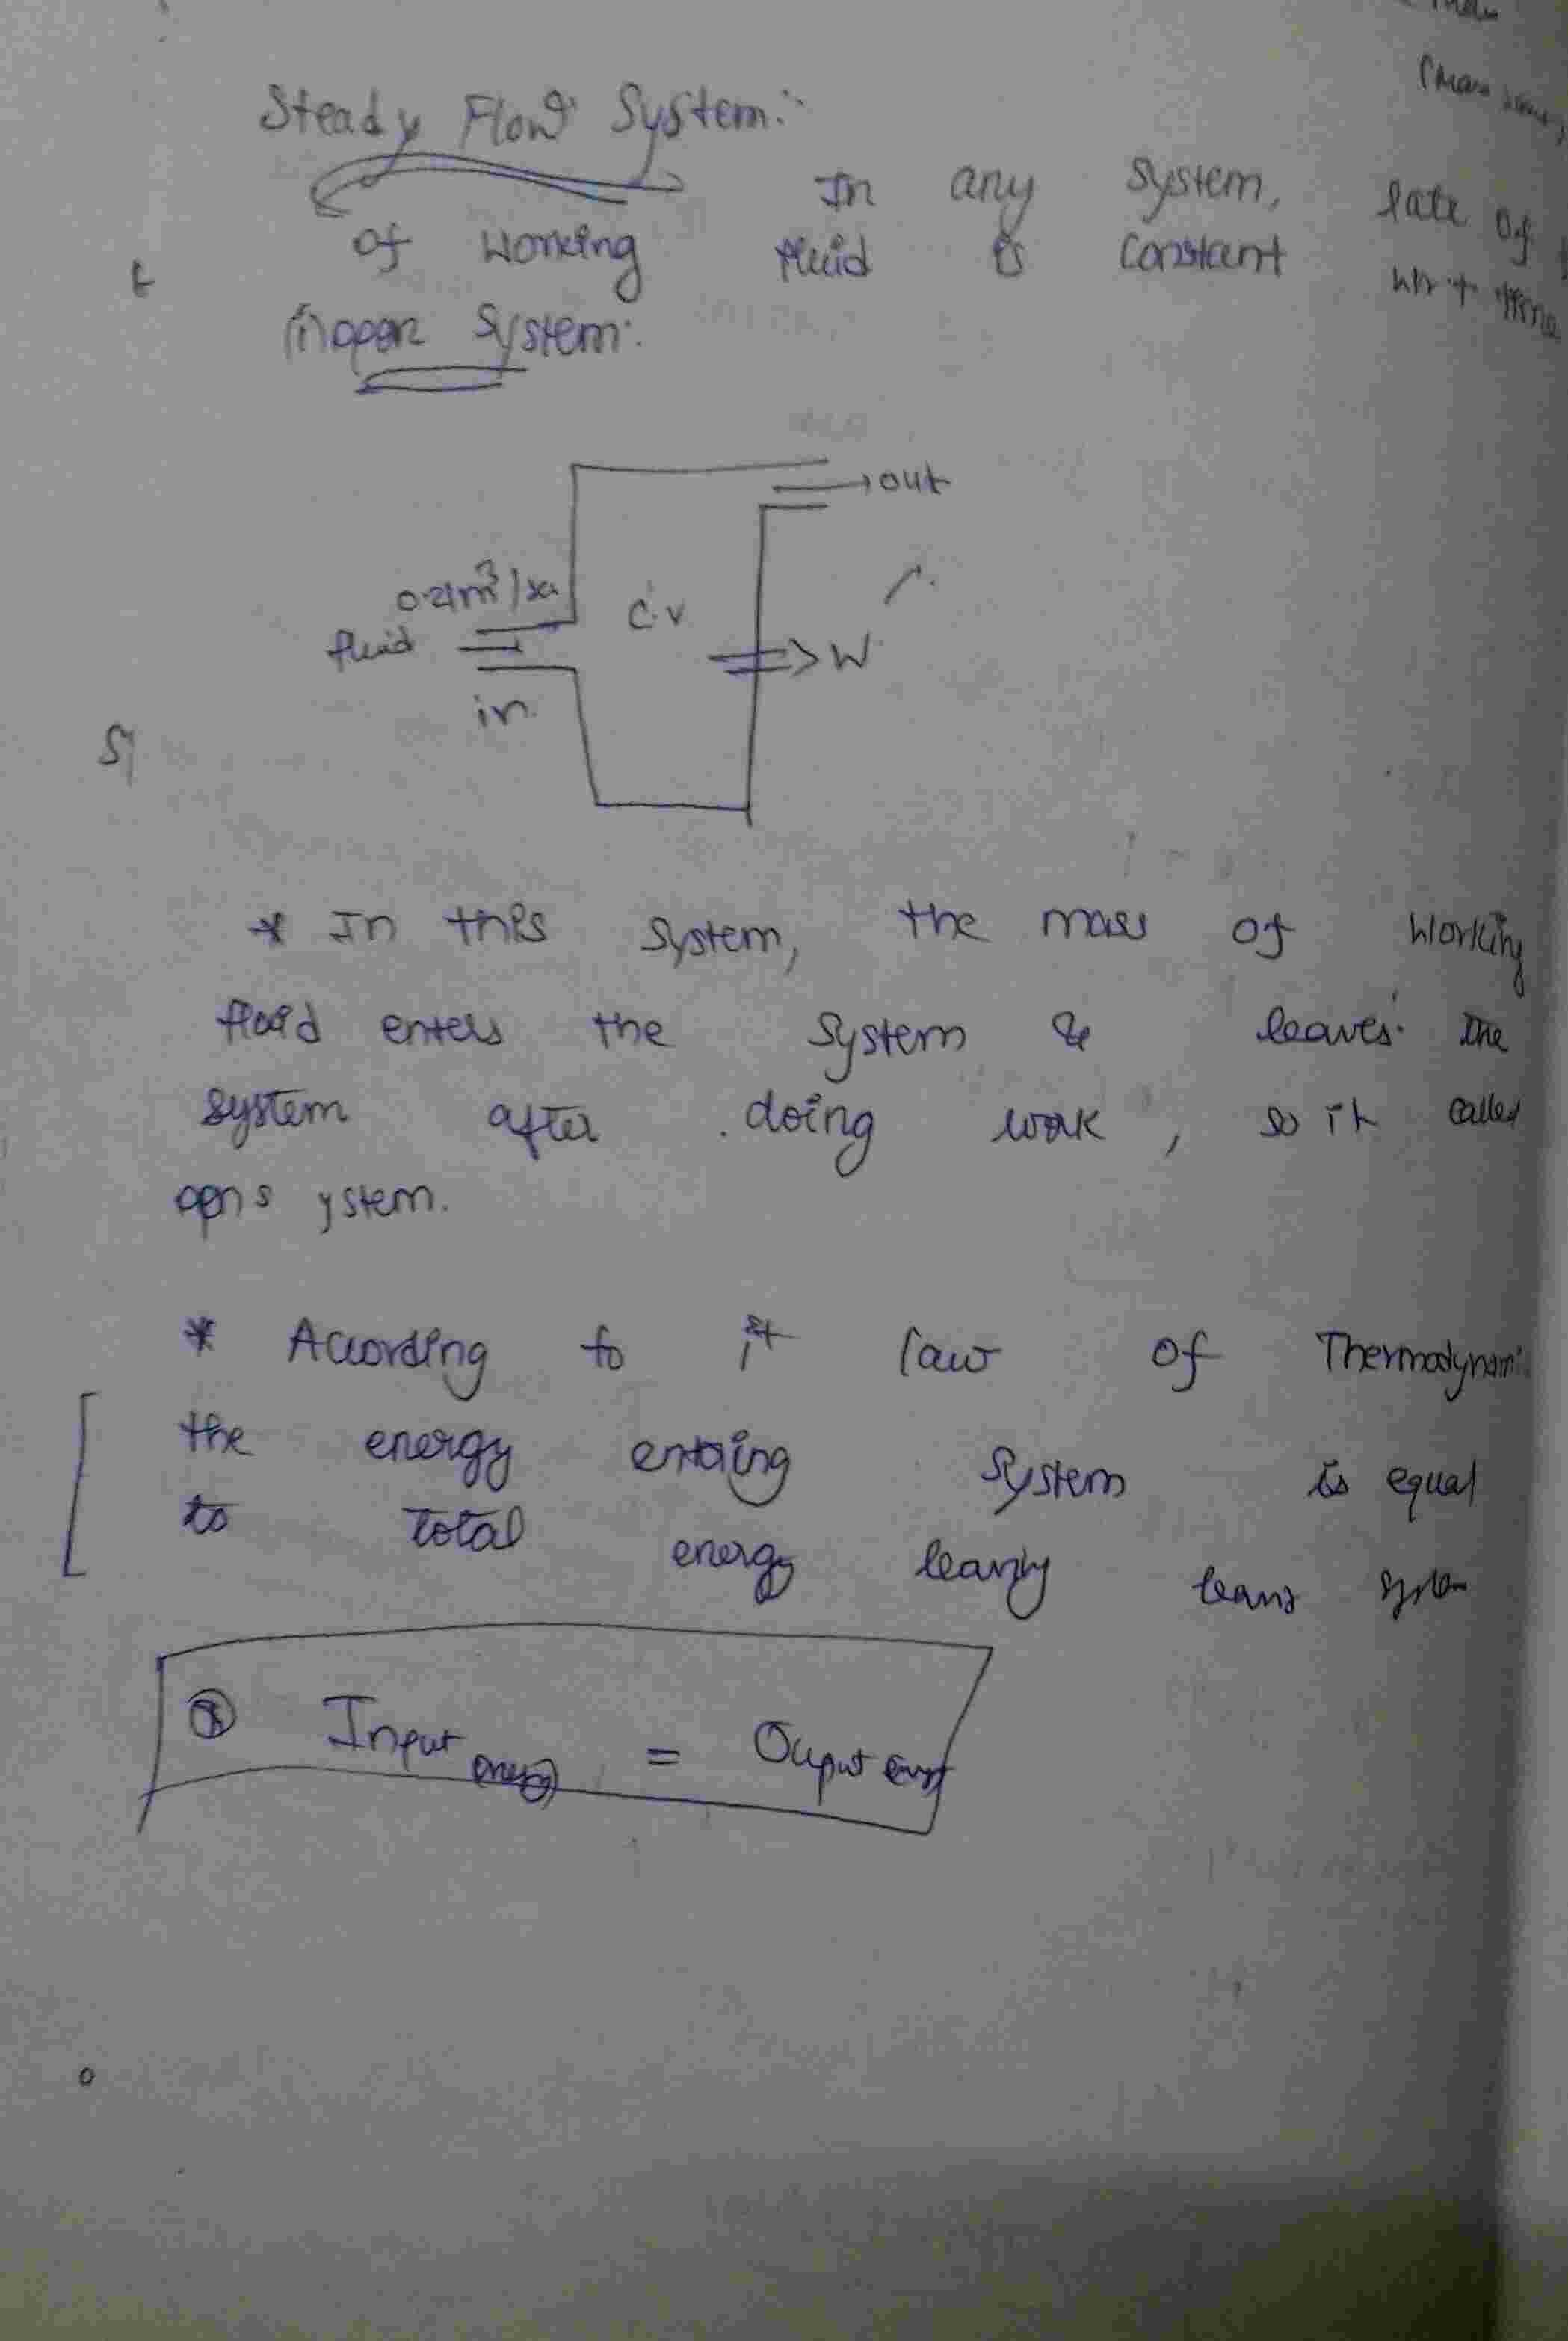 Steady Flow System:-
In any system, rate of
of working fluid is constant w.r.t time
(i) open system:
out
0.2 m³/sec
C.V
fluid
W
in
* In this system, the mass of working
fluid enters the system & leaves the
system after doing work, so it called
opn s ystem.
* According to 1st law of Thermodynami
the energy entering system is equal
to total energy leaving leaving system
Input energy = Ouput energy